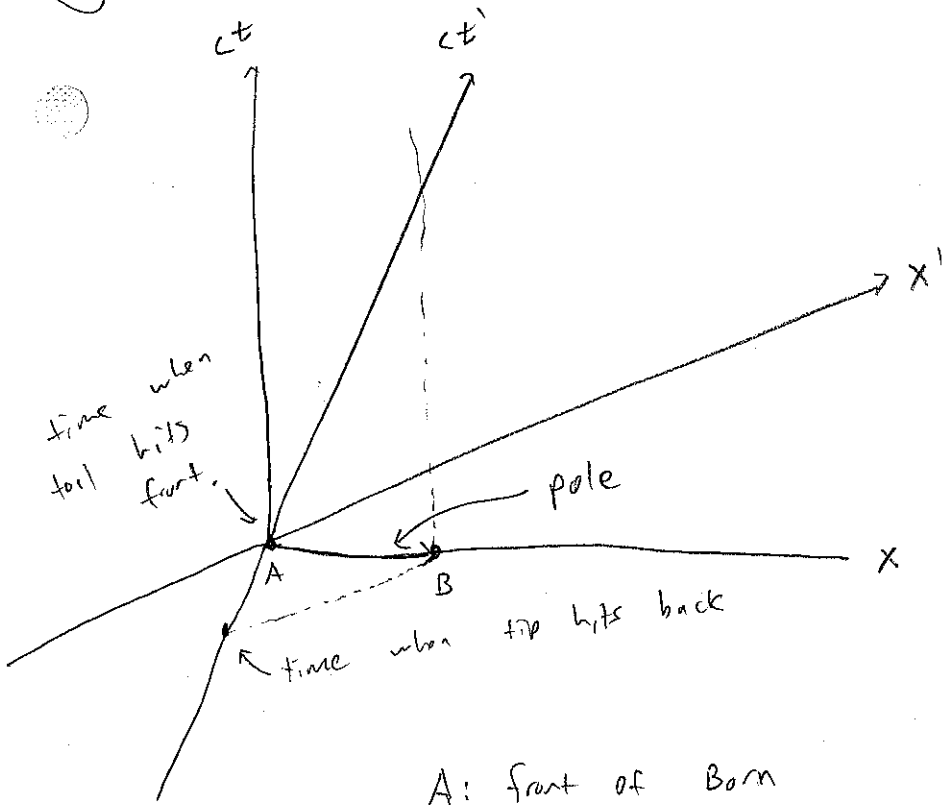 ct
ct'
x'
time when
tail hits
front.
pole
A
B
x
time when tip hits back
A: front of Barn